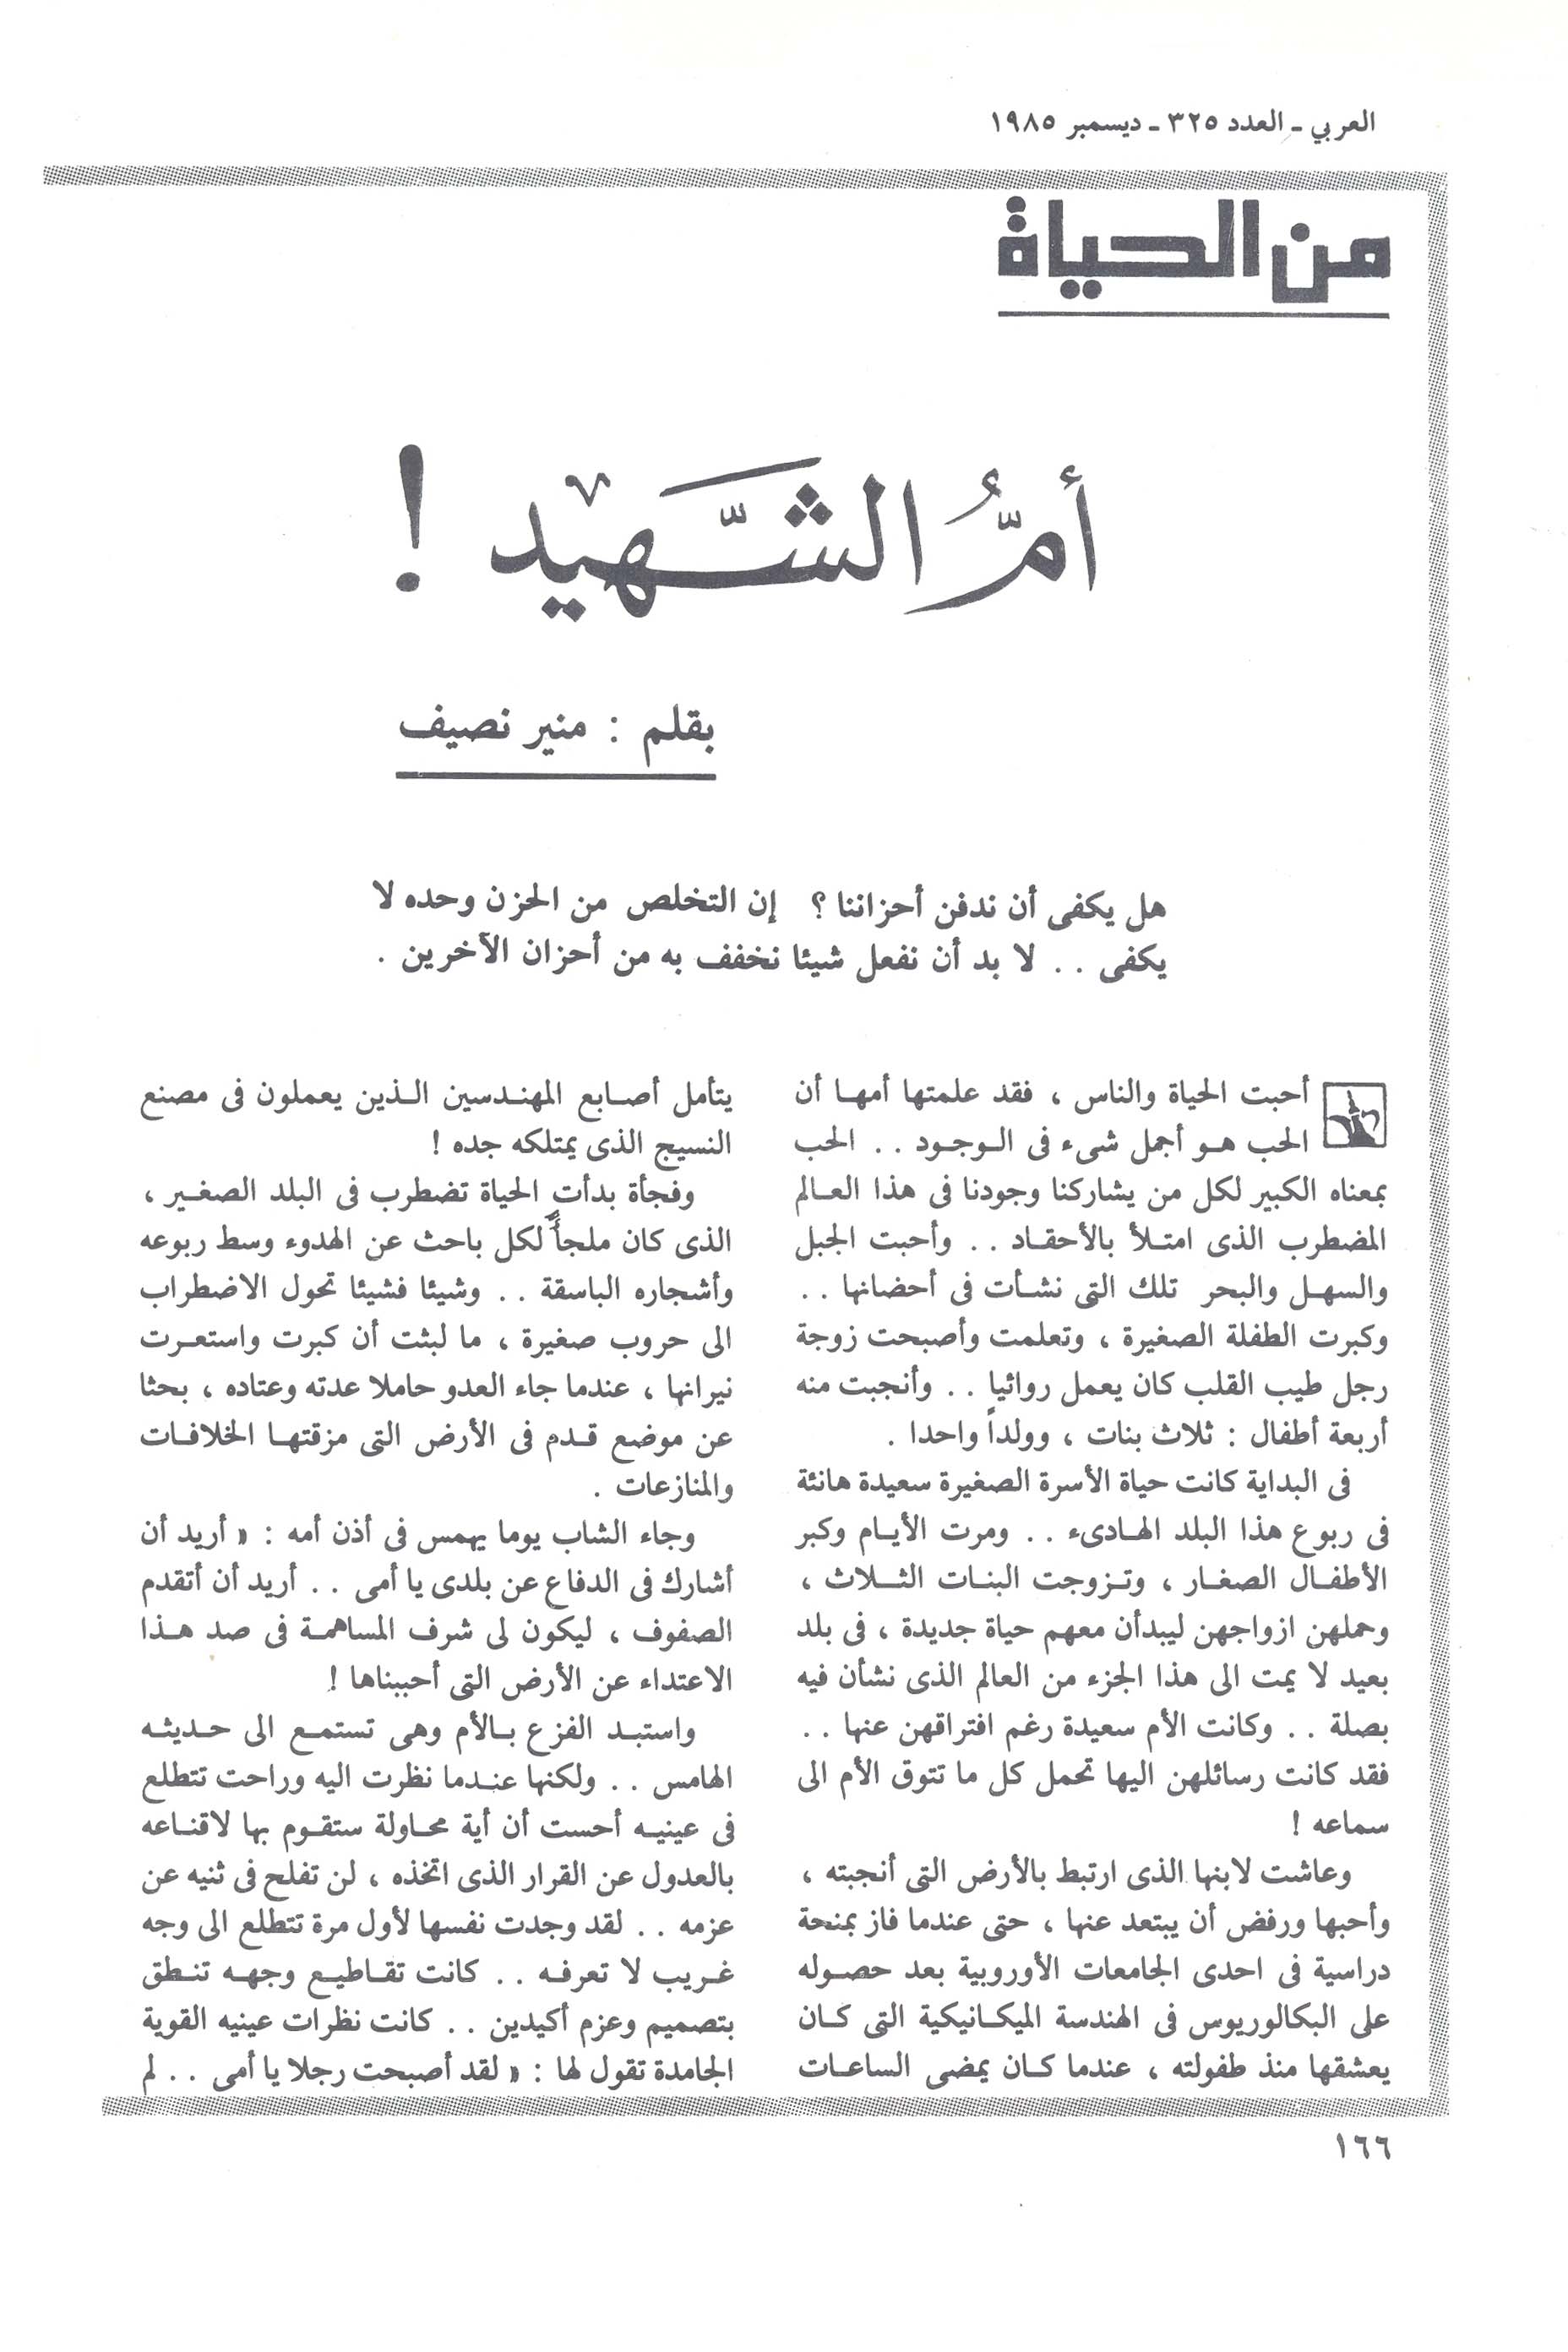 العربي - العدد ٣٢٥ - ديسمبر ١٩٨٥
من الحياة
أمُّ الشَّهيد !
بقلم : منير نصيف
هل يكفى أن ندفن أحزاننا ؟ إن التخلص من الحزن وحده لا
يكفى . . لا بد أن نفعل شيئا نخفف به من أحزان الآخرين .
أحبت الحياة والناس ، فقد علمتها أمها أن
الحب هو أجمل شىء فى الوجود . . الحب
بمعناه الكبير لكل من يشاركنا وجودنا فى هذا العالم
المضطرب الذى امتلأ بالأحقاد . . وأحبت الجبل
والسهل والبحر تلك التى نشأت فى أحضانها . .
وكبرت الطفلة الصغيرة ، وتعلمت وأصبحت زوجة
رجل طيب القلب كان يعمل روائيا . . وأنجبت منه
أربعة أطفال : ثلاث بنات ، وولداً واحدا .
فى البداية كانت حياة الأسرة الصغيرة سعيدة هانئة
فى ربوع هذا البلد الهادىء . . ومرت الأيام وكبر
الأطفال الصغار ، وتزوجت البنات الثلاث ،
وحملهن ازواجهن ليبدأن معهم حياة جديدة ، فى بلد
بعيد لا يمت الى هذا الجزء من العالم الذى نشأن فيه
بصلة . . وكانت الأم سعيدة رغم افتراقهن عنها . .
فقد كانت رسائلهن اليها تحمل كل ما تتوق الأم الى
سماعه !
وعاشت لابنها الذى ارتبط بالأرض التى أنجبته ،
وأحبها ورفض أن يبتعد عنها ، حتى عندما فاز بمنحة
دراسية فى احدى الجامعات الأوروبية بعد حصوله
على البكالوريوس فى الهندسة الميكانيكية التى كان
يعشقها منذ طفولته ، عندما كان يمضى الساعات
يتأمل أصابع المهندسين الذين يعملون فى مصنع
النسيج الذى يمتلكه جده !
وفجأة بدأت الحياة تضطرب فى البلد الصغير ،
الذى كان ملجأً لكل باحث عن الهدوء وسط ربوعه
وأشجاره الباسقة . . وشيئا فشيئا تحول الاضطراب
الى حروب صغيرة ، ما لبثت أن كبرت واستعرت
نيرانها ، عندما جاء العدو حاملا عدته وعتاده ، بحثا
عن موضع قدم فى الأرض التى مزقتها الخلافات
والمنازعات .
وجاء الشاب يوما يهمس فى أذن أمه : « أريد أن
أشارك فى الدفاع عن بلدى يا أمى . . أريد أن أتقدم
الصفوف ، ليكون لى شرف المساهمة فى صد هذا
الاعتداء عن الأرض التى أحببناها !
واستبد الفزع بالأم وهى تستمع الى حديثه
الهامس . . ولكنها عندما نظرت اليه وراحت تتطلع
فى عينيه أحست أن أية محاولة ستقوم بها لاقناعه
بالعدول عن القرار الذى اتخذه ، لن تفلح فى ثنيه عن
عزمه . . لقد وجدت نفسها لأول مرة تتطلع الى وجه
غريب لا تعرفه . . كانت تقاطيع وجهه تنطق
بتصميم وعزم أكيدين . . كانت نظرات عينيه القوية
الجامدة تقول لها : « لقد أصبحت رجلا يا أمى . . لم
١٦٦